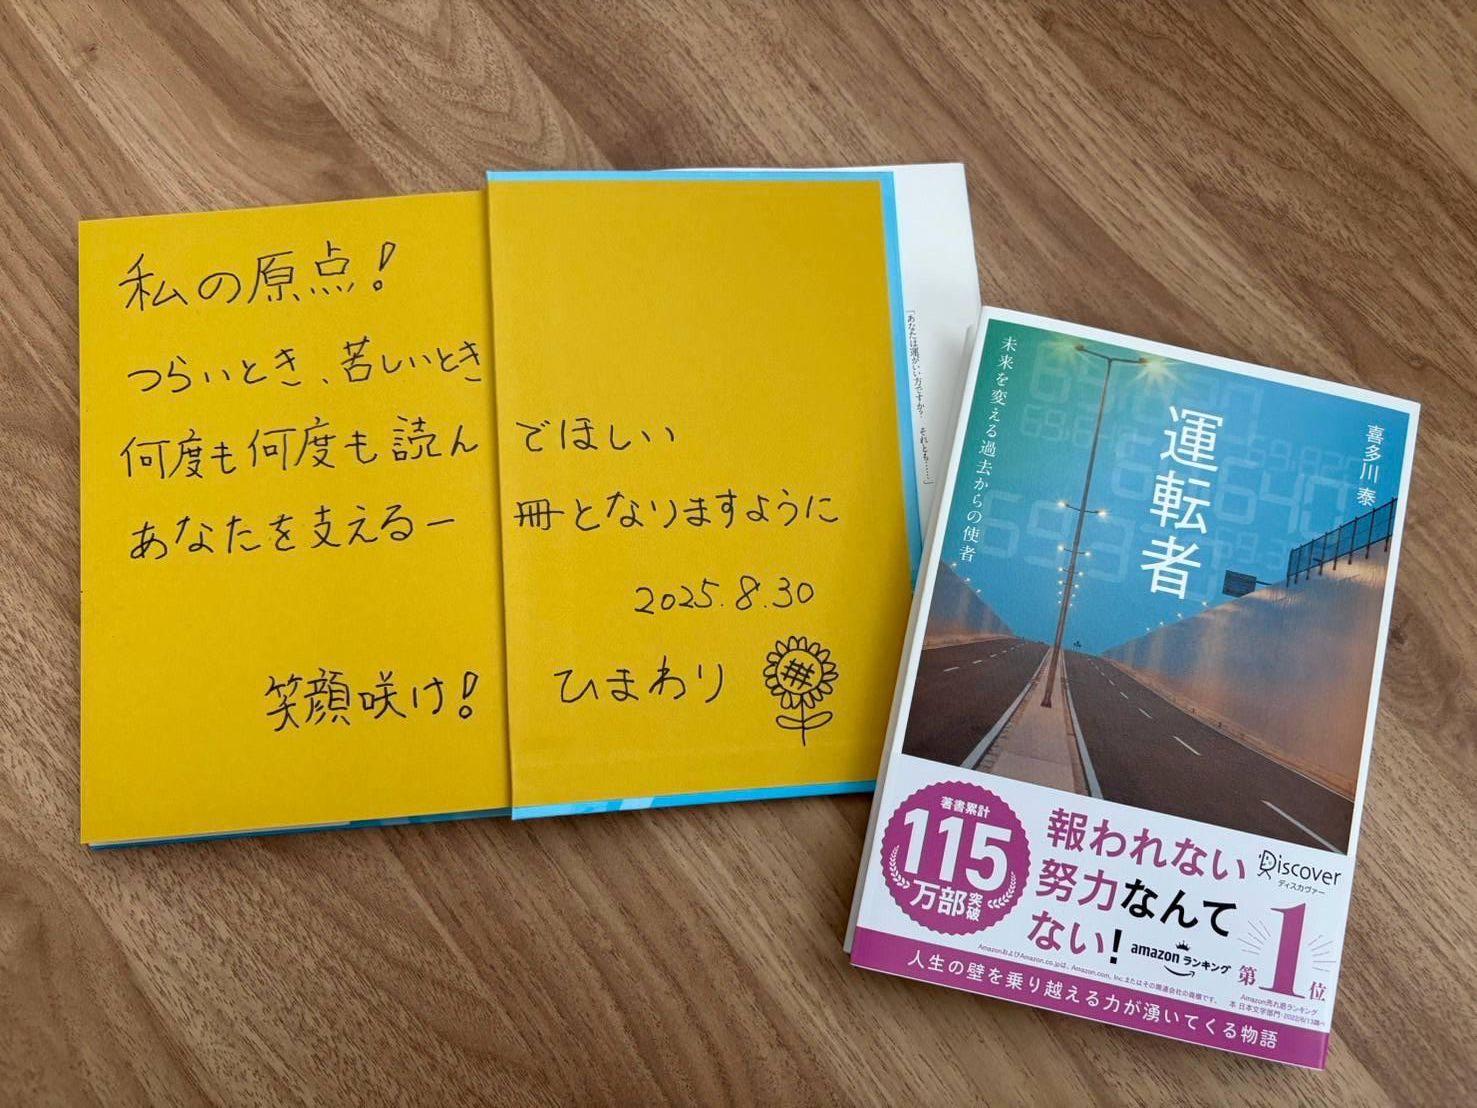 私の原点!
つらいとき、苦しいとき
何度も何度も読んでほしい
あなたを支える一冊となりますように
2025.8.30
笑顔咲け! ひまわり
「あなたは運がいい方ですか? それとも……」
喜多川 泰
運転者
未来を変える過去からの使者
著書累計
115
万部突破
報われない
努力なんて
ない!
Discover
ディスカヴァー
amazon ランキング
第1位
AmazonおよびAmazon.co.jpは、Amazon.com, Inc.またはその関連会社の商標です。
Amazon売れ筋ランキング
本 日本文学部門・2022/6/13調べ
人生の壁を乗り越える力が湧いてくる物語